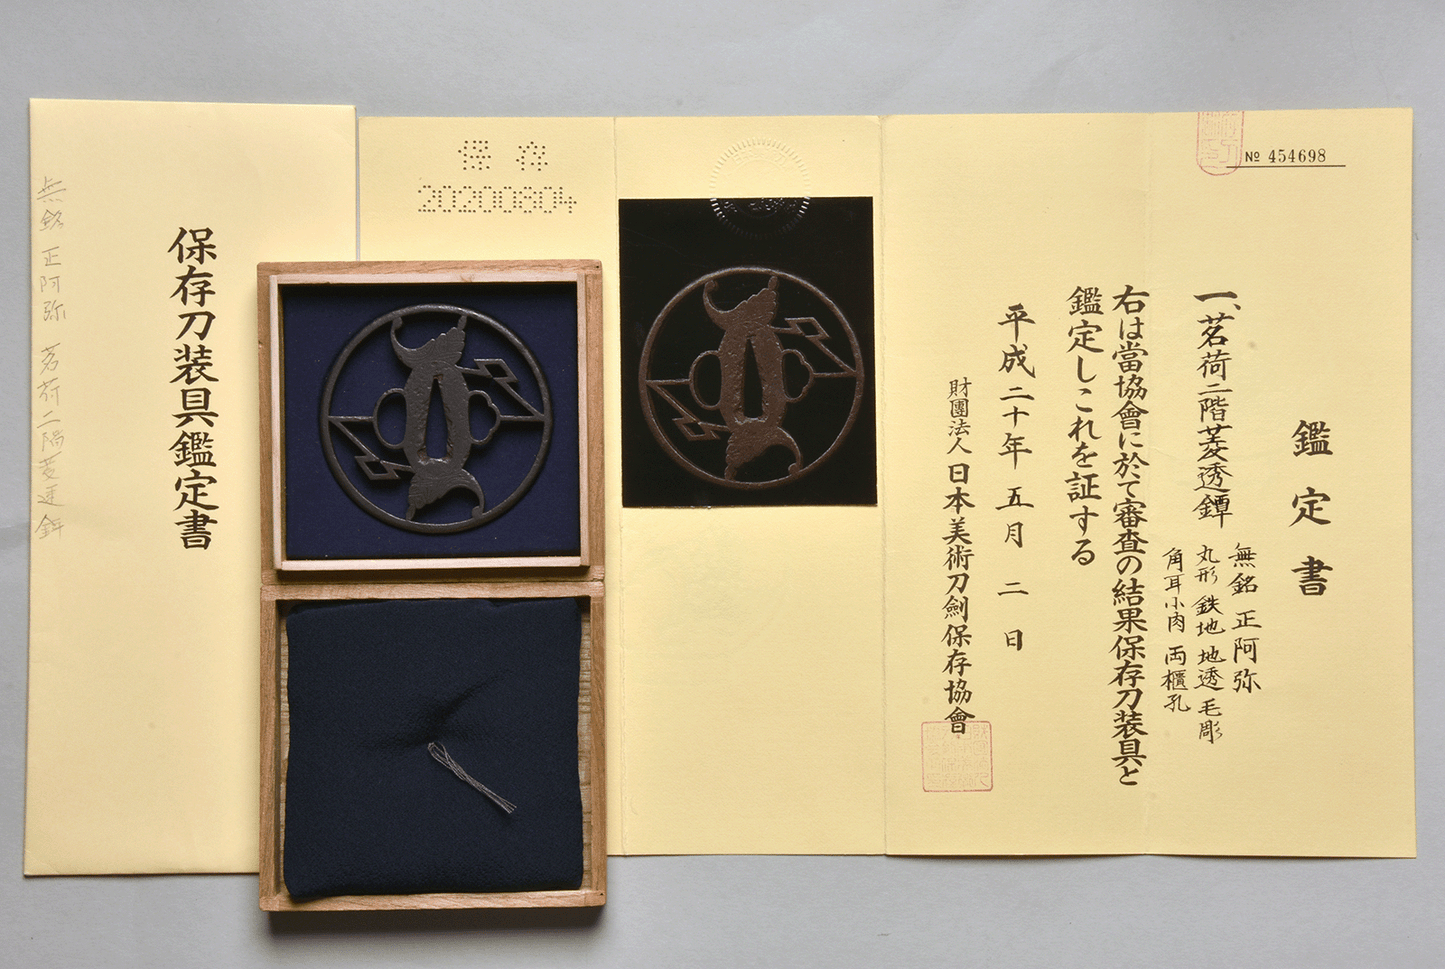 鑑定書
No 454698
一、茗荷二階菱透鐔
無銘 正阿弥
丸形 鉄地 地透 毛彫
角耳小肉 両櫃孔
右は當協會に於て審査の結果保存刀装具と
鑑定しこれを証する
平成二十年 五月 二日
財團法人 日本美術刀劍保存協會
保存
20200604
保存刀装具鑑定書
無銘 正阿弥 茗荷二階菱透鐔